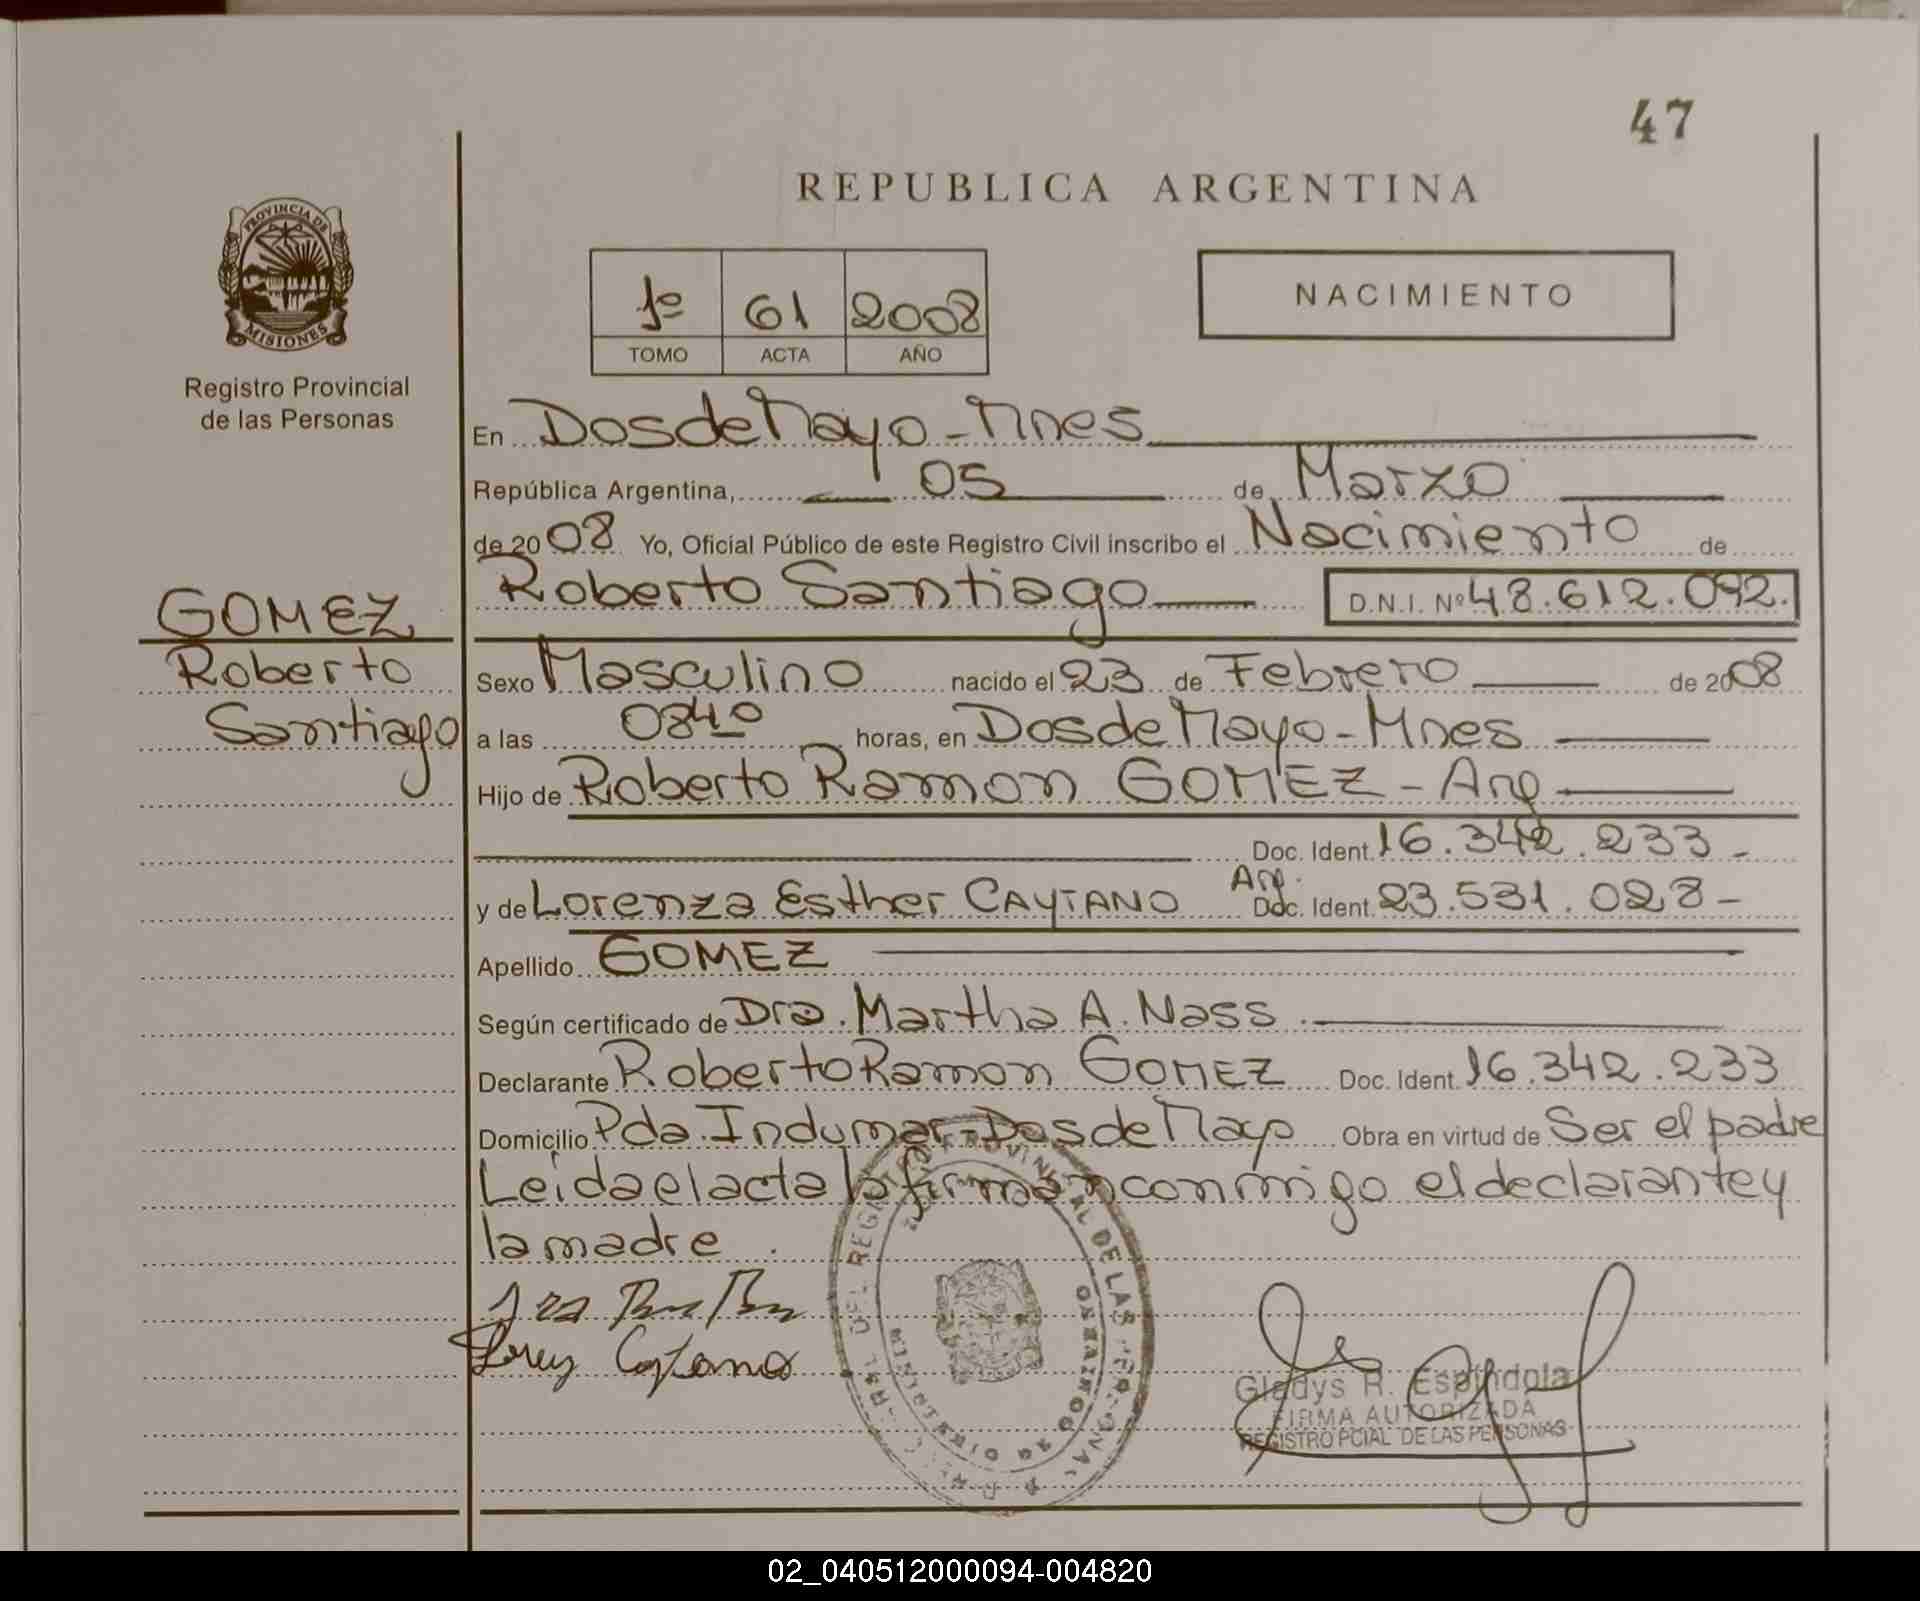 47
REPUBLICA ARGENTINA
PROVINCIA DE
MISIONES
Registro Provincial
de las Personas
1º 61 2008
TOMO ACTA AÑO
NACIMIENTO
En Dos de Mayo - Mnes
República Argentina, 05 de Marzo
de 2008 Yo, Oficial Público de este Registro Civil inscribo el Nacimiento de
GOMEZ
Roberto
Santiago
Roberto Santiago D.N.I. Nº 48.612.092.
Sexo Masculino nacido el 23 de Febrero de 2008
a las 0840 horas, en Dos de Mayo - Mnes
Hijo de Roberto Ramon GOMEZ - Arg
Doc. Ident. 16.342.233 -
y de Lorenza Esther CAYTANO Arg. Doc. Ident. 23.531.028 -
Apellido GOMEZ
Según certificado de Dra. Martha A. Nass.
Declarante Roberto Ramon GOMEZ Doc. Ident. 16.342.233
Domicilio Pda. Indumar - Dos de Mayo Obra en virtud de Ser el padre
Leida el acta la firman conmigo el declarante y
la madre.
Gladys R. Espindola
FIRMA AUTORIZADA
REGISTRO PCIAL DE LAS PERSONAS
02_040512000094-004820